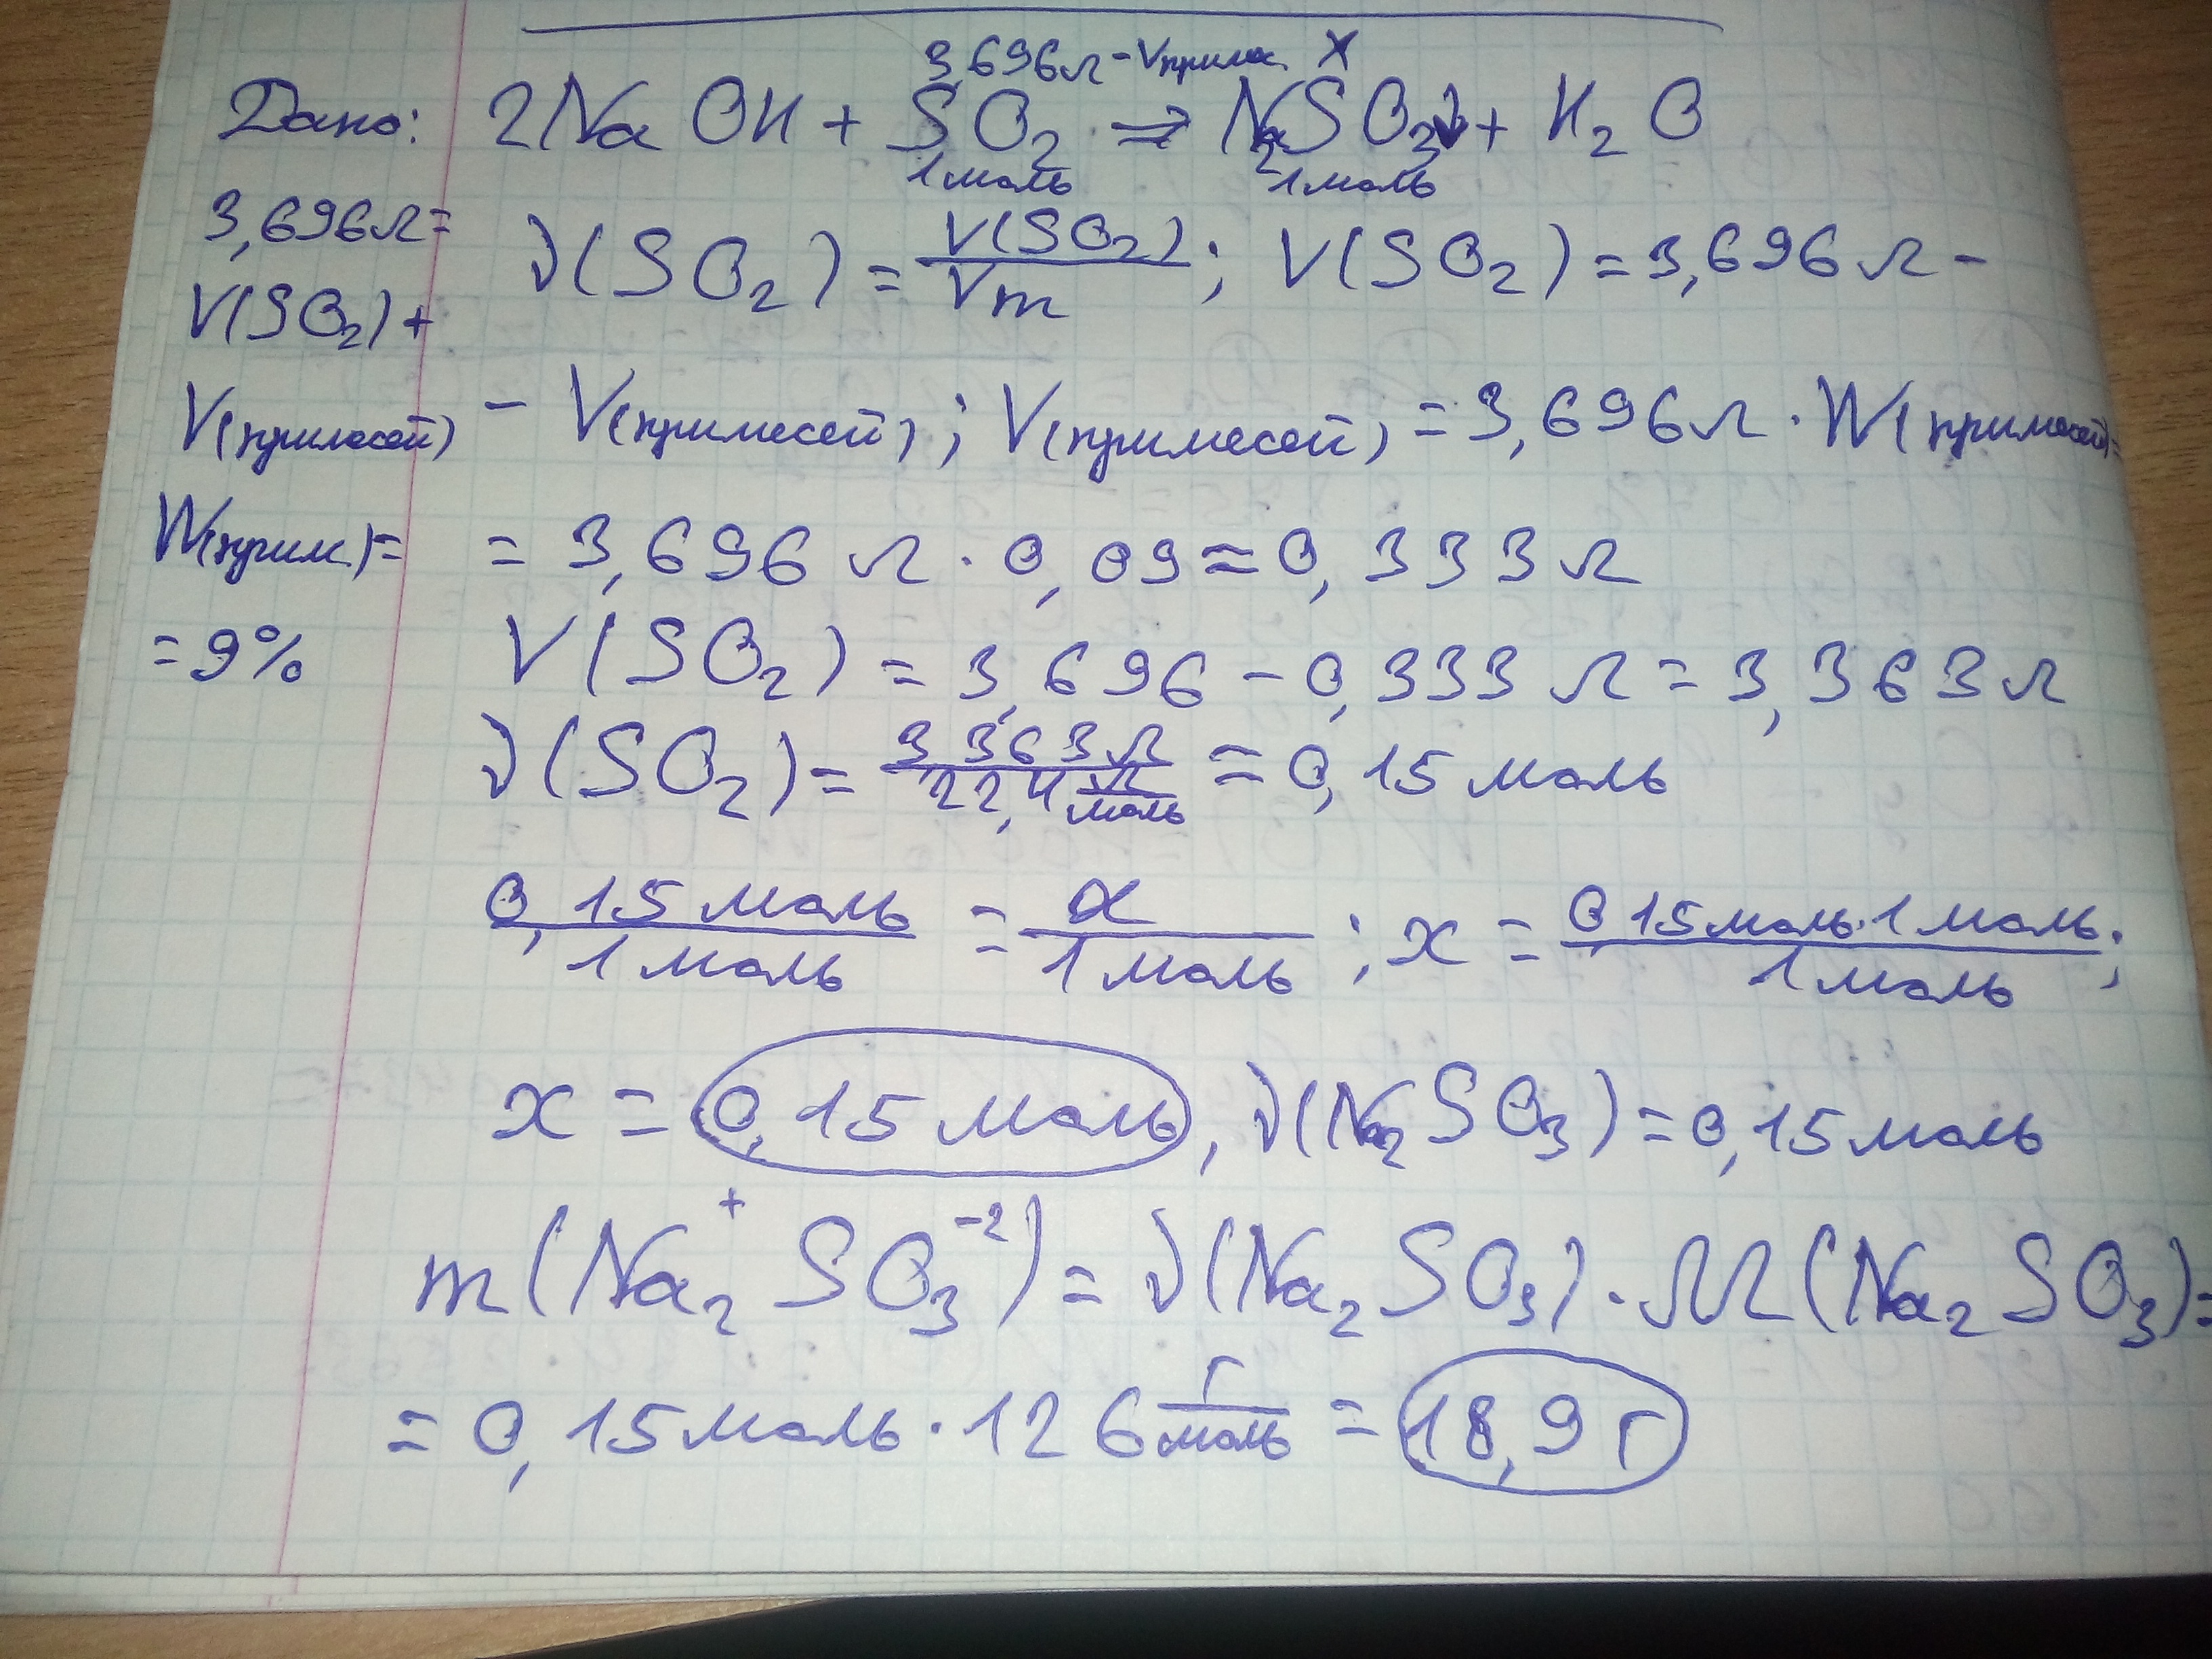 3,696л - Vприм. X
Дано: 2NaOH + SO₂ ⇒ Na₂SO₃↓ + H₂O
1 моль 1 моль
3,696л =
ν(SO₂) = V(SO₂)/Vm ; V(SO₂) = 3,696л -
V(SO₂) +
V(примесей) - V(примесей) ; V(примесей) = 3,696л · W(примесей) =
W(прим.) = = 3,696л · 0,09 ≈ 0,333л
= 9% V(SO₂) = 3,696 - 0,333л = 3,363л
ν(SO₂) = 3,363л / 22,4 л/моль ≈ 0,15 моль
0,15 моль / 1 моль = x / 1 моль ; x = 0,15 моль · 1 моль / 1 моль ;
x = 0,15 моль, ν(Na₂SO₃) = 0,15 моль
m(Na₂⁺SO₃⁻²) = ν(Na₂SO₃) · M(Na₂SO₃) =
= 0,15 моль · 126 г/моль = 18,9 г